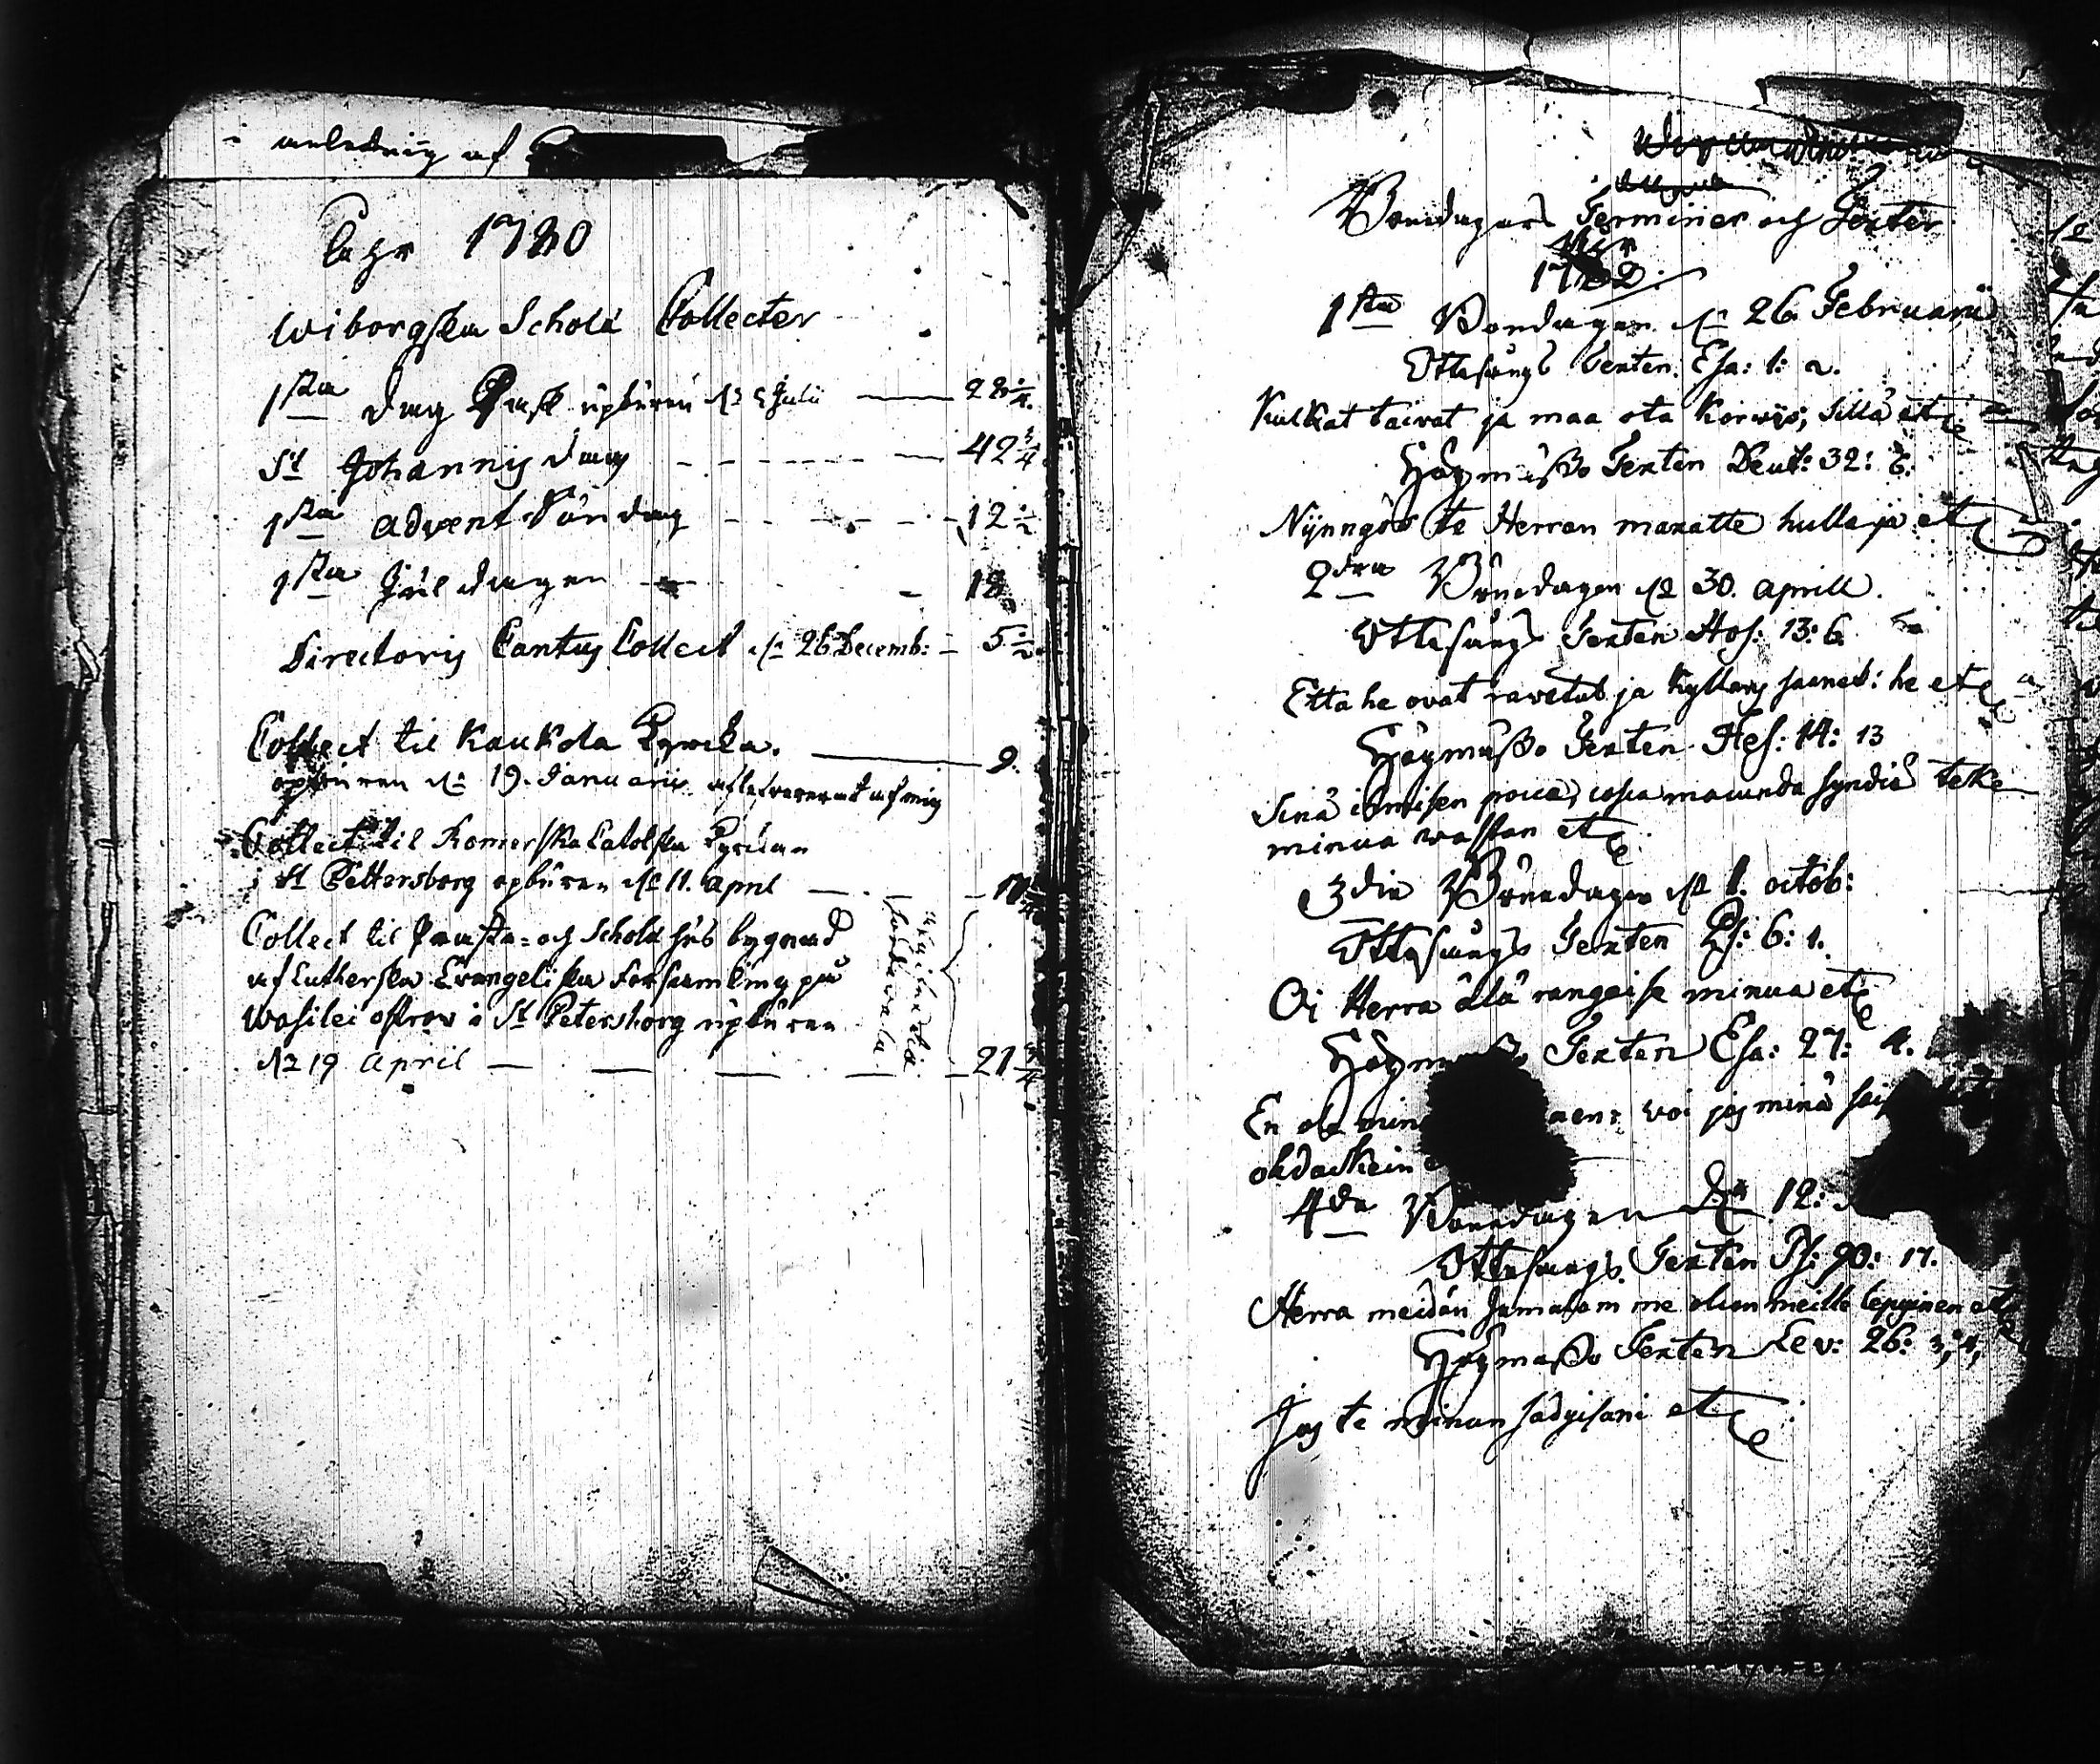 i anledning af
Åhr 1780
Wiborgska Schola Collecter
1sta dag Påsk upburen d: 5 Julii — 28 1/4.
St Johannis dag - - - - 42 3/4
1sta Advent Söndag - - - - 12 1/2
1sta Juledagen - - 18
Directoris Cantus Collect d: 26 Decemb: - 5 1/2
Collect til Kaukola Kyrcka. — 9.
opburen d: 19. Januarii aflefvererat af mig
Collect til Romerska Catolska Kyrckan
i St Pettersborg opburen d: 11. April — 17
Collect til Prästa- och Schola hus bygnad
af Lutherska Evangeliska Forsamling på
Wasilei ostrow i St Petersborg upburen
d: 19 April — — — — 21 3/4
Bönedagars Terminer och Texter
1782.
1sta Bönedagen d: 26 Februarii
Ottesångs Texten. Esa: 1: 2.
Kulkat taivat ja maa ota korwijs, sillä etc
Högmässo Texten Deut: 32: 6.
Nijnngös te Herran maxatte hullu ja etc
2dra Bönedagen d: 30. April.
Ottesångs Texten Hos: 13: 6
Että he ovat ravitut ja kyllans saanet: he etc
Högmässo Texten Hes: 14: 13
Sinä ihmisen poica, cosca maacunda syndiä teke
minua wastan etc
3die Bönedagen d: 1. octob:
Ottesångs Texten Ps: 6: 1.
Oi Herra älä rangaise minua etc
Texten Esa: 27: 4.
En ole voi jos minä
ohdackein
4de Bönedagen d: 12:
Ottesångs Texten Ps: 90: 17.
Herra meidän Jumalam me olcon meille leppinen etc
Högmässo Texten Lev: 26: 3, 4,
Jos te minun sädyisäni etc